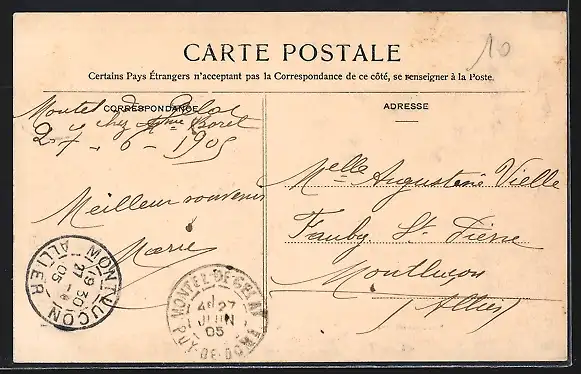 10
CARTE POSTALE
Certains Pays Étrangers n'acceptant pas la Correspondance de ce côté, se renseigner à la Poste.
CORRESPONDANCE
Montel de Gelat
chez Mme Boret
27 - 6 - 1905
Meilleur souvenir
Marie
ADRESSE
Melle Augustine Vielle
Faubg St Pierre
Montluçon
Allier
MONTLUÇON
19 30
27 - 6
05
ALLIER
MONTEL-DE-GELAT
27
JUIN
05
PUY-DE-DOME